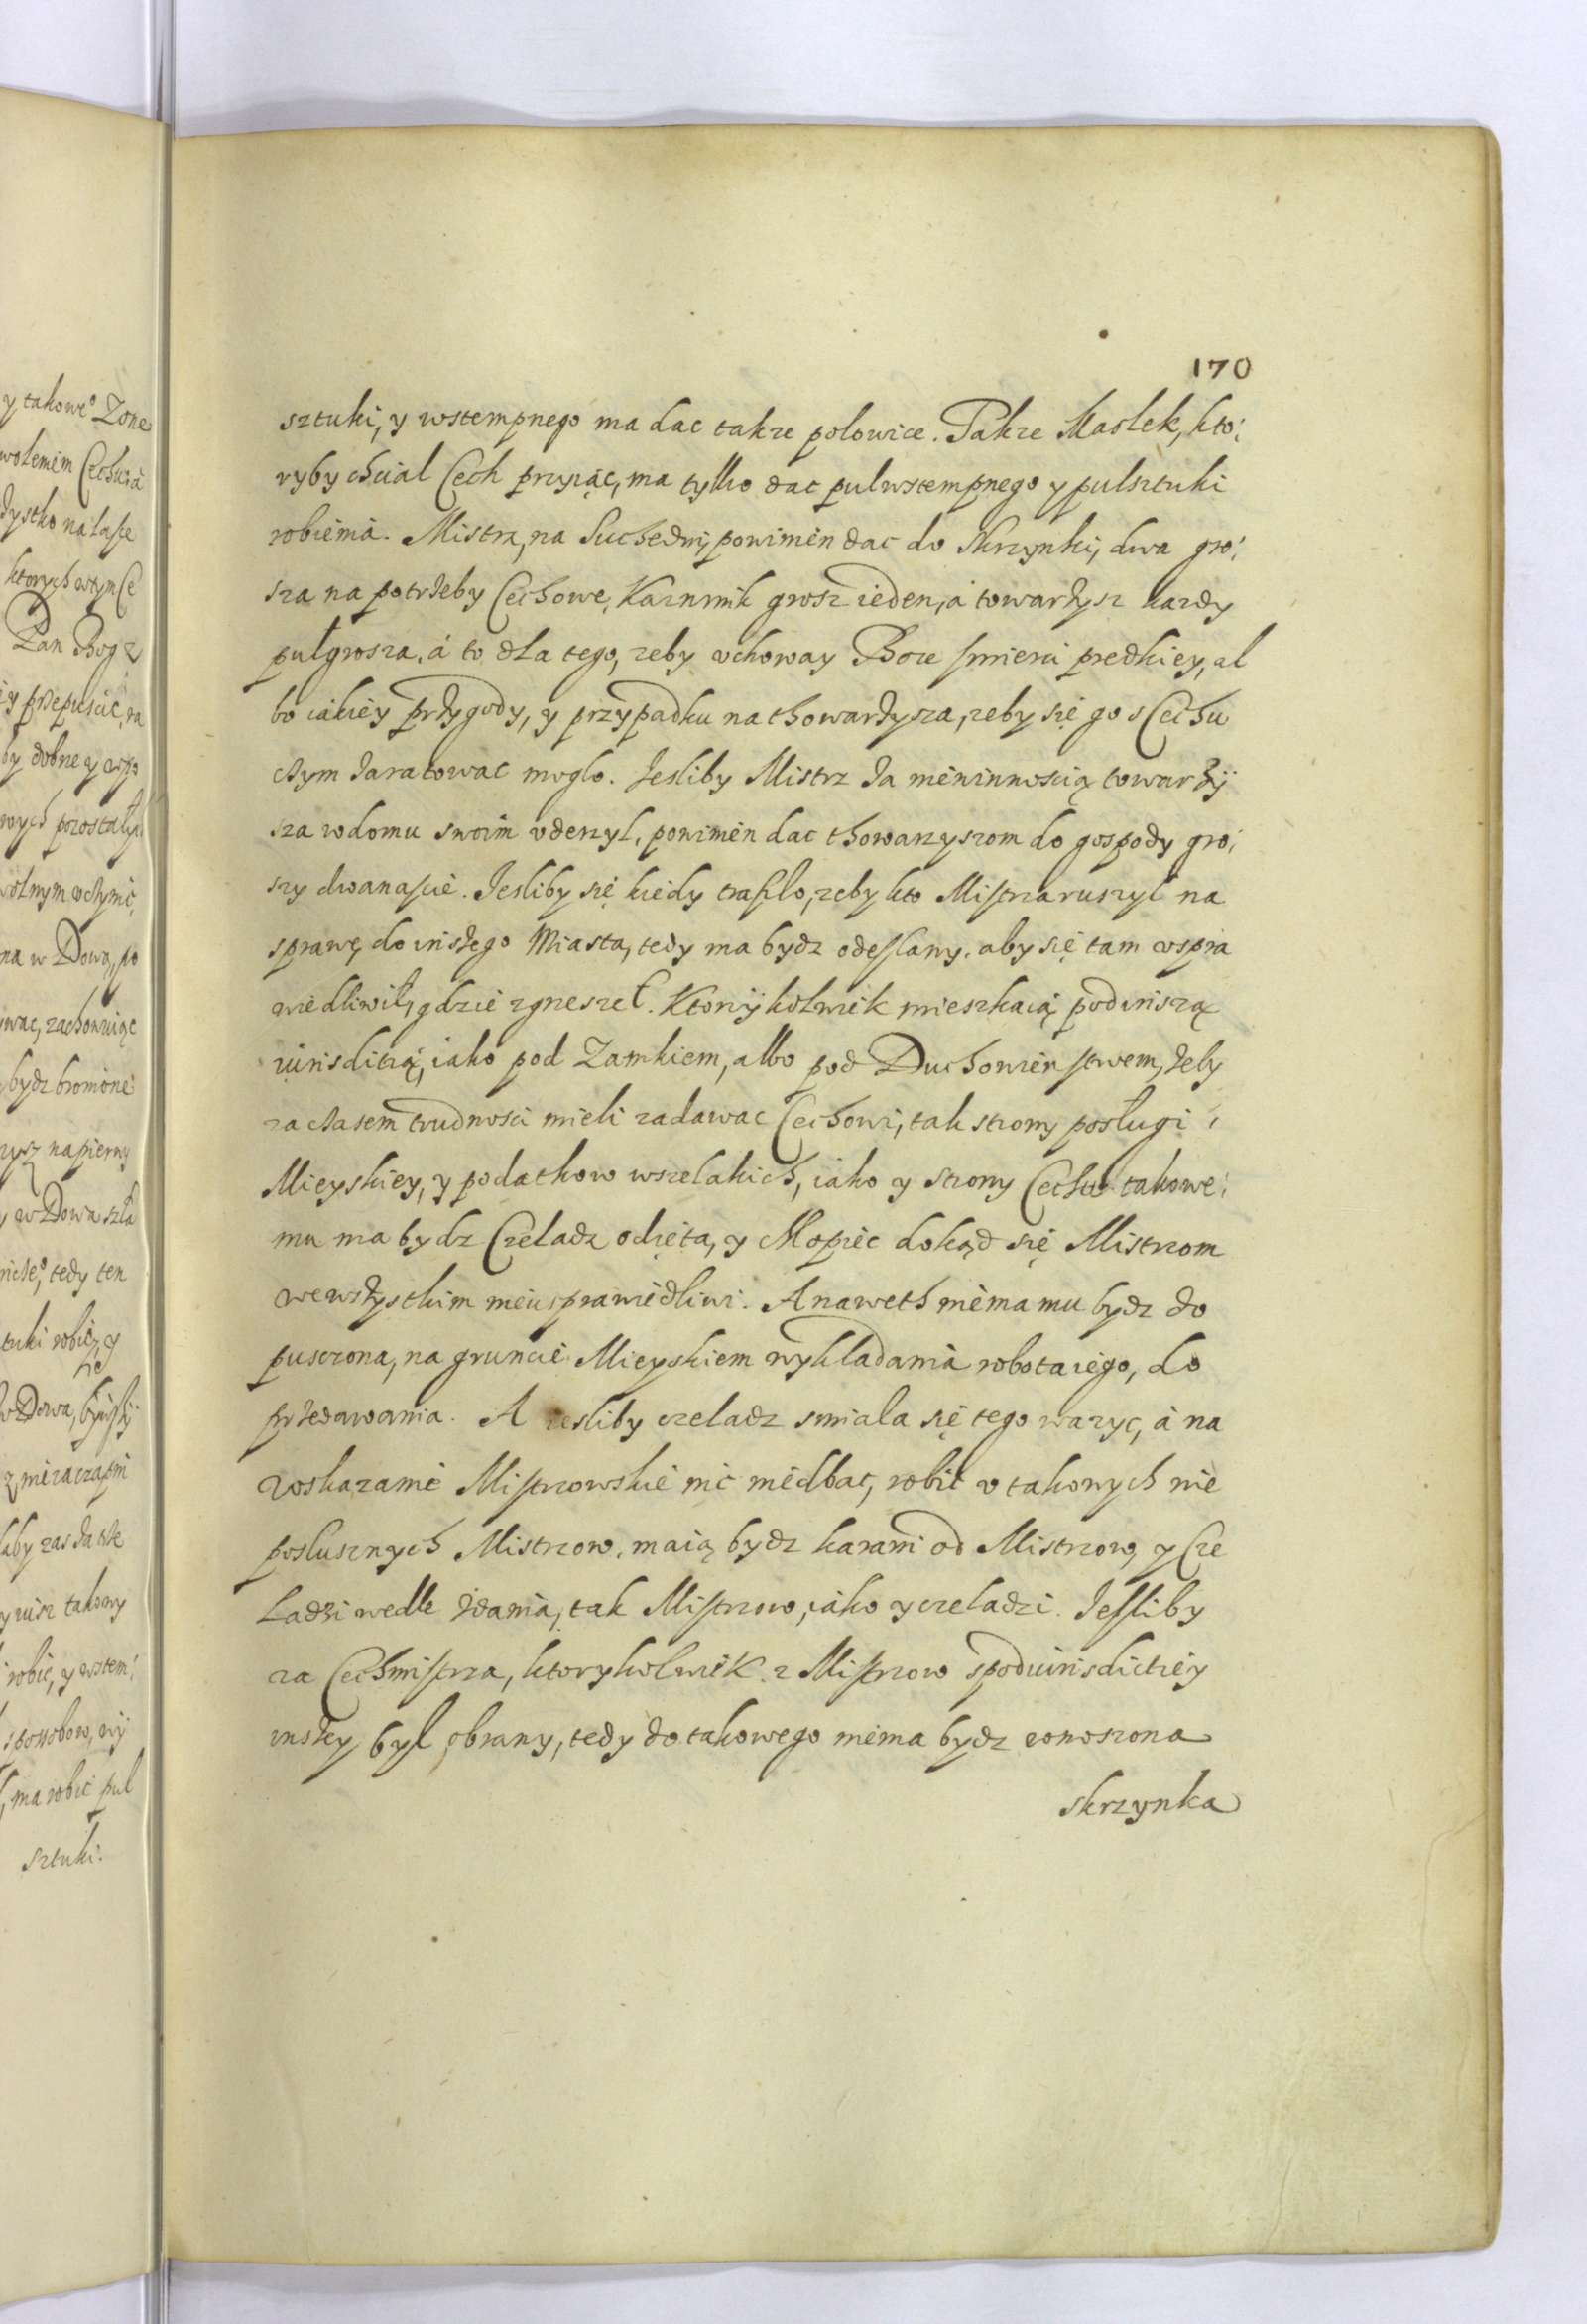 170
sztuki, y wstempnego ma dac takze polowice. Takze Maslek, kto:
ryby chcial Cech przyiąc, ma tylko dac pulwstempnego y pulsztuki
robienia. Mistrz, na Suchedni, powinien dac do Skrzynki, dwa gro:
sza na potrzeby Cechowe, Kaznmik grosz ieden, á towarzysz kazdy
pulgrosza, á to dla tego, zeby uchoway Boze smierci predkiey, al
bo iakiey przygody, y przypadku na thowarzysza, zeby się go s Cechu
czym zaratowac moglo. Jesliby Mistrz za nieninnoscią towarzÿ
sza w domu swoim uderzyl, powinien dac thowarzyszom do gospody gro:
szy dwanascie. Jesliby się kiedy trafilo, zeby kto Mistrza ruszyl na
sprawę do inszego Miasta, tedy ma bydz odeslany, aby się tam wspra
wiedliwil, gdzie zgrzeszel. Ktorÿkolwiek mieszkaią pod inszą
iurisdictią, iako pod Zamkiem, albo pod Duchowienstwem, zeby
za czasem trudnosci mieli zadawac Cechowi, tak strony poslugi
Mieyskiey, y podatkow wszelakich, iako y strony Cechu takowe:
mu ma bydz Czeladz odięta, y Chlopiec dokąd się Mistrzom
we wszystkim nieusprawiedliwi. A naweth niema mu bydz do
pusczona, na gruncie Mieyskiem wykladania robota iego, do
przedawania. A iesliby czeladz smiala się tego wazyc, á na
roskazanie Mistrzowskie nic niedbac, robic u takowych nie
poslusznych Mistrzow, maią bydz karani od Mistrzow, y Cze
ladzi wedle zdania, tak Mistrzow, iako y czeladzi. Jessliby
za Cechmistrza, ktorykolwiek z Mistrzow spod iurisdictiey
inszey byl obrany, tedy do takowego niema bydz wnoszona
skrzynka
y takowe° Zone
dystko na lasce
ktorych w tym Ce
Pan Bog z
by dobrze y
na w Dowa, po
bydz bronione
tedy ten
sztuki robic, y
y insz takowy
robic, y wstem:
sposobow, wÿ
ma robic pul
sztuki.